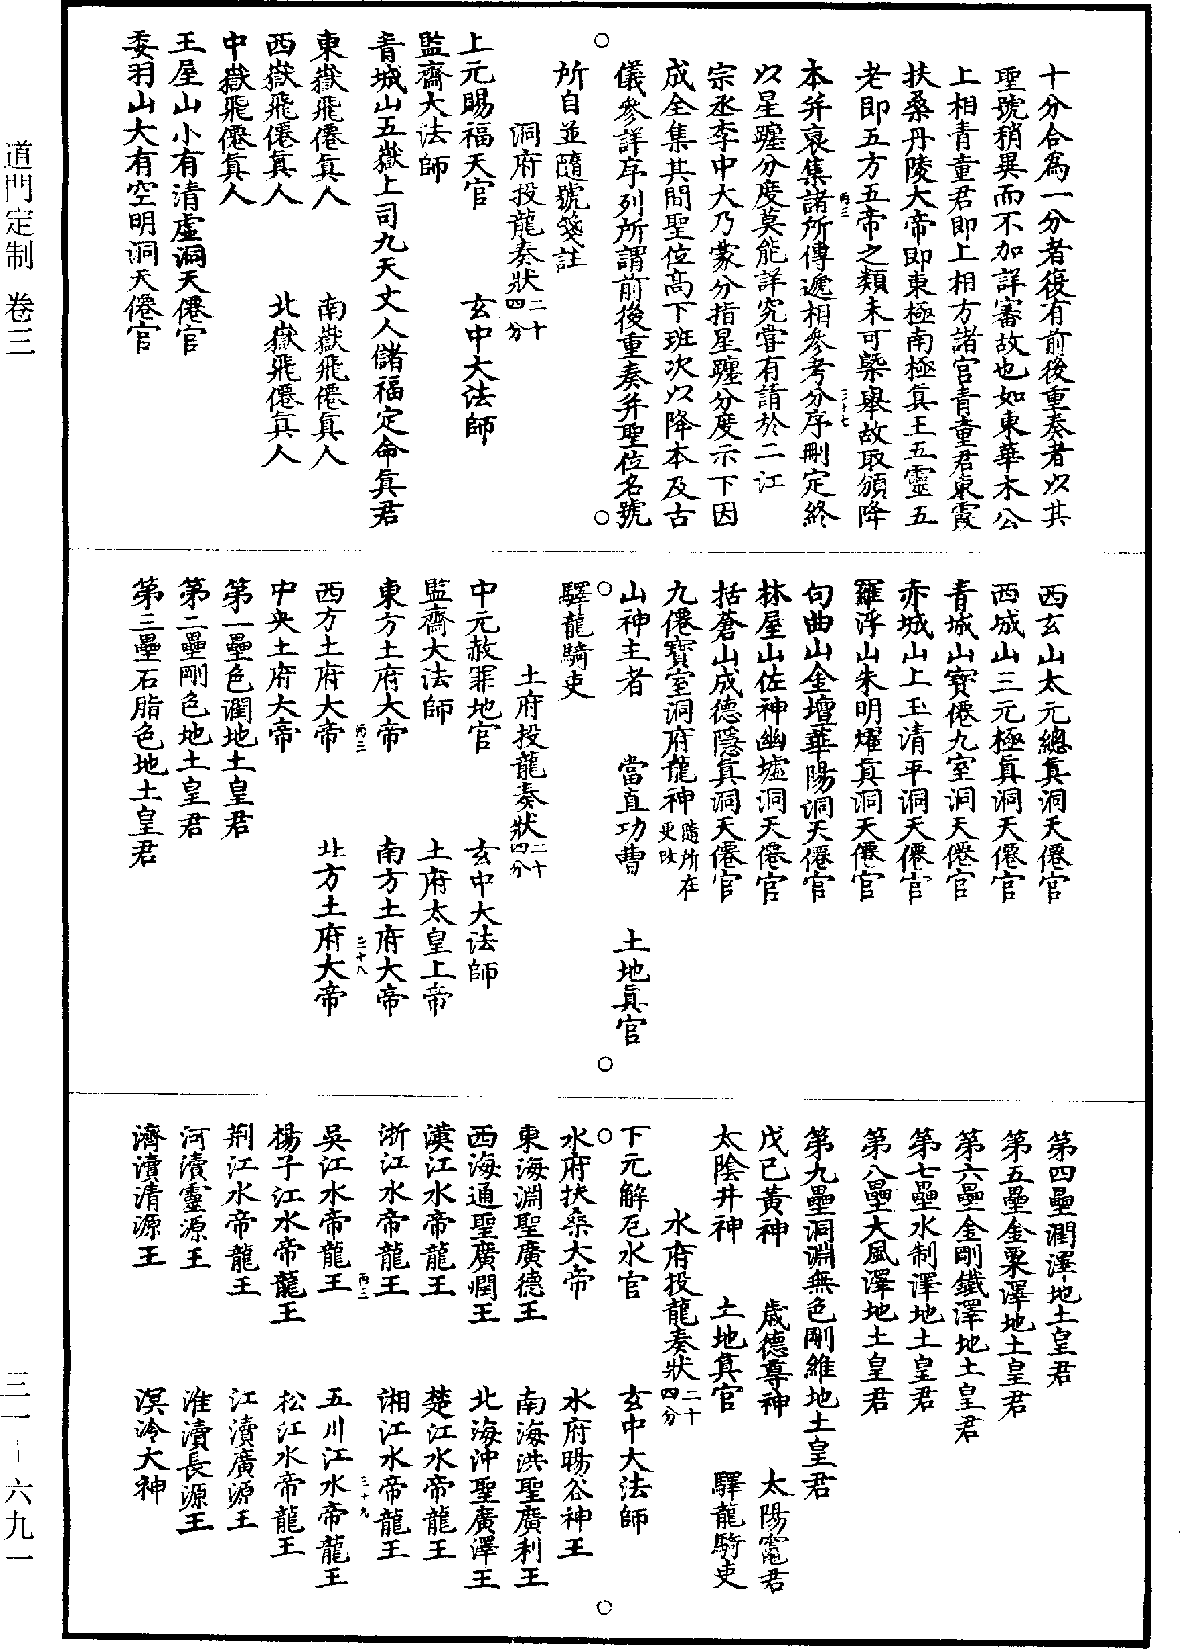 道門定制　卷三
十分合為一分者復有前後重奏者以其
聖號稍異而不加詳審故也如東華木公
上相青童君即上相方諸宮青童君東霞
扶桑丹陵大帝即東極南極真王五靈五
老即五方五帝之類未可槩舉故取頒降
丙三
三十七
本并裒集諸所傳遞相參考分序刪定終
以星躔分度莫能詳究嘗有請於二江
宗丞李中大乃蒙分指星躔分度示下因
成全集其間聖位高下班次以降本及古
儀參詳序列所謂前後重奏并聖位名號
所自並隨號箋註
洞府投龍奏狀二十四分
上元賜福天官　玄中大法師
監齋大法師
青城山五嶽上司九天丈人儲福定命真君
東嶽飛僊真人　南嶽飛僊真人
西嶽飛僊真人　北嶽飛僊真人
中嶽飛僊真人
王屋山小有清虛洞天僊官
委羽山大有空明洞天僊官
西玄山太元總真洞天僊官
西城山三元極真洞天僊官
青城山寶僊九室洞天僊官
赤城山上玉清平洞天僊官
羅浮山朱明燿真洞天僊官
句曲山金壇華陽洞天僊官
林屋山佐神幽墟洞天僊官
括蒼山成德隱真洞天僊官
九僊寶室洞府龍神隨所在更改
山神主者　當直功曹　土地真官
驛龍騎吏
土府投龍奏狀二十四分
中元赦罪地官　玄中大法師
監齋大法師　土府太皇上帝
東方土府大帝　南方土府大帝
丙三
三十八
西方土府大帝　北方土府大帝
中央土府大帝
第一壘色潤地土皇君
第二壘剛色地土皇君
第三壘石脂色地土皇君
第四壘潤澤地土皇君
第五壘金粟澤地土皇君
第六壘金剛鐵澤地土皇君
第七壘水制澤地土皇君
第八壘大風澤地土皇君
第九壘洞淵無色剛維地土皇君
戊己黃神　歲德尊神　太陽竈君
太陰井神　土地真官　驛龍騎吏
水府投龍奏狀二十四分
下元解厄水官　玄中大法師
水府扶桑大帝　水府暘谷神王
東海淵聖廣德王　南海洪聖廣利王
西海通聖廣潤王　北海沖聖廣澤王
漢江水帝龍王　楚江水帝龍王
浙江水帝龍王　湘江水帝龍王
丙三
三十九
吳江水帝龍王　五川江水帝龍王
楊子江水帝龍王　松江水帝龍王
荆江水帝龍王　江瀆廣源王
河瀆靈源王　淮瀆長源王
濟瀆清源王　溟泠大神
三一－六九一